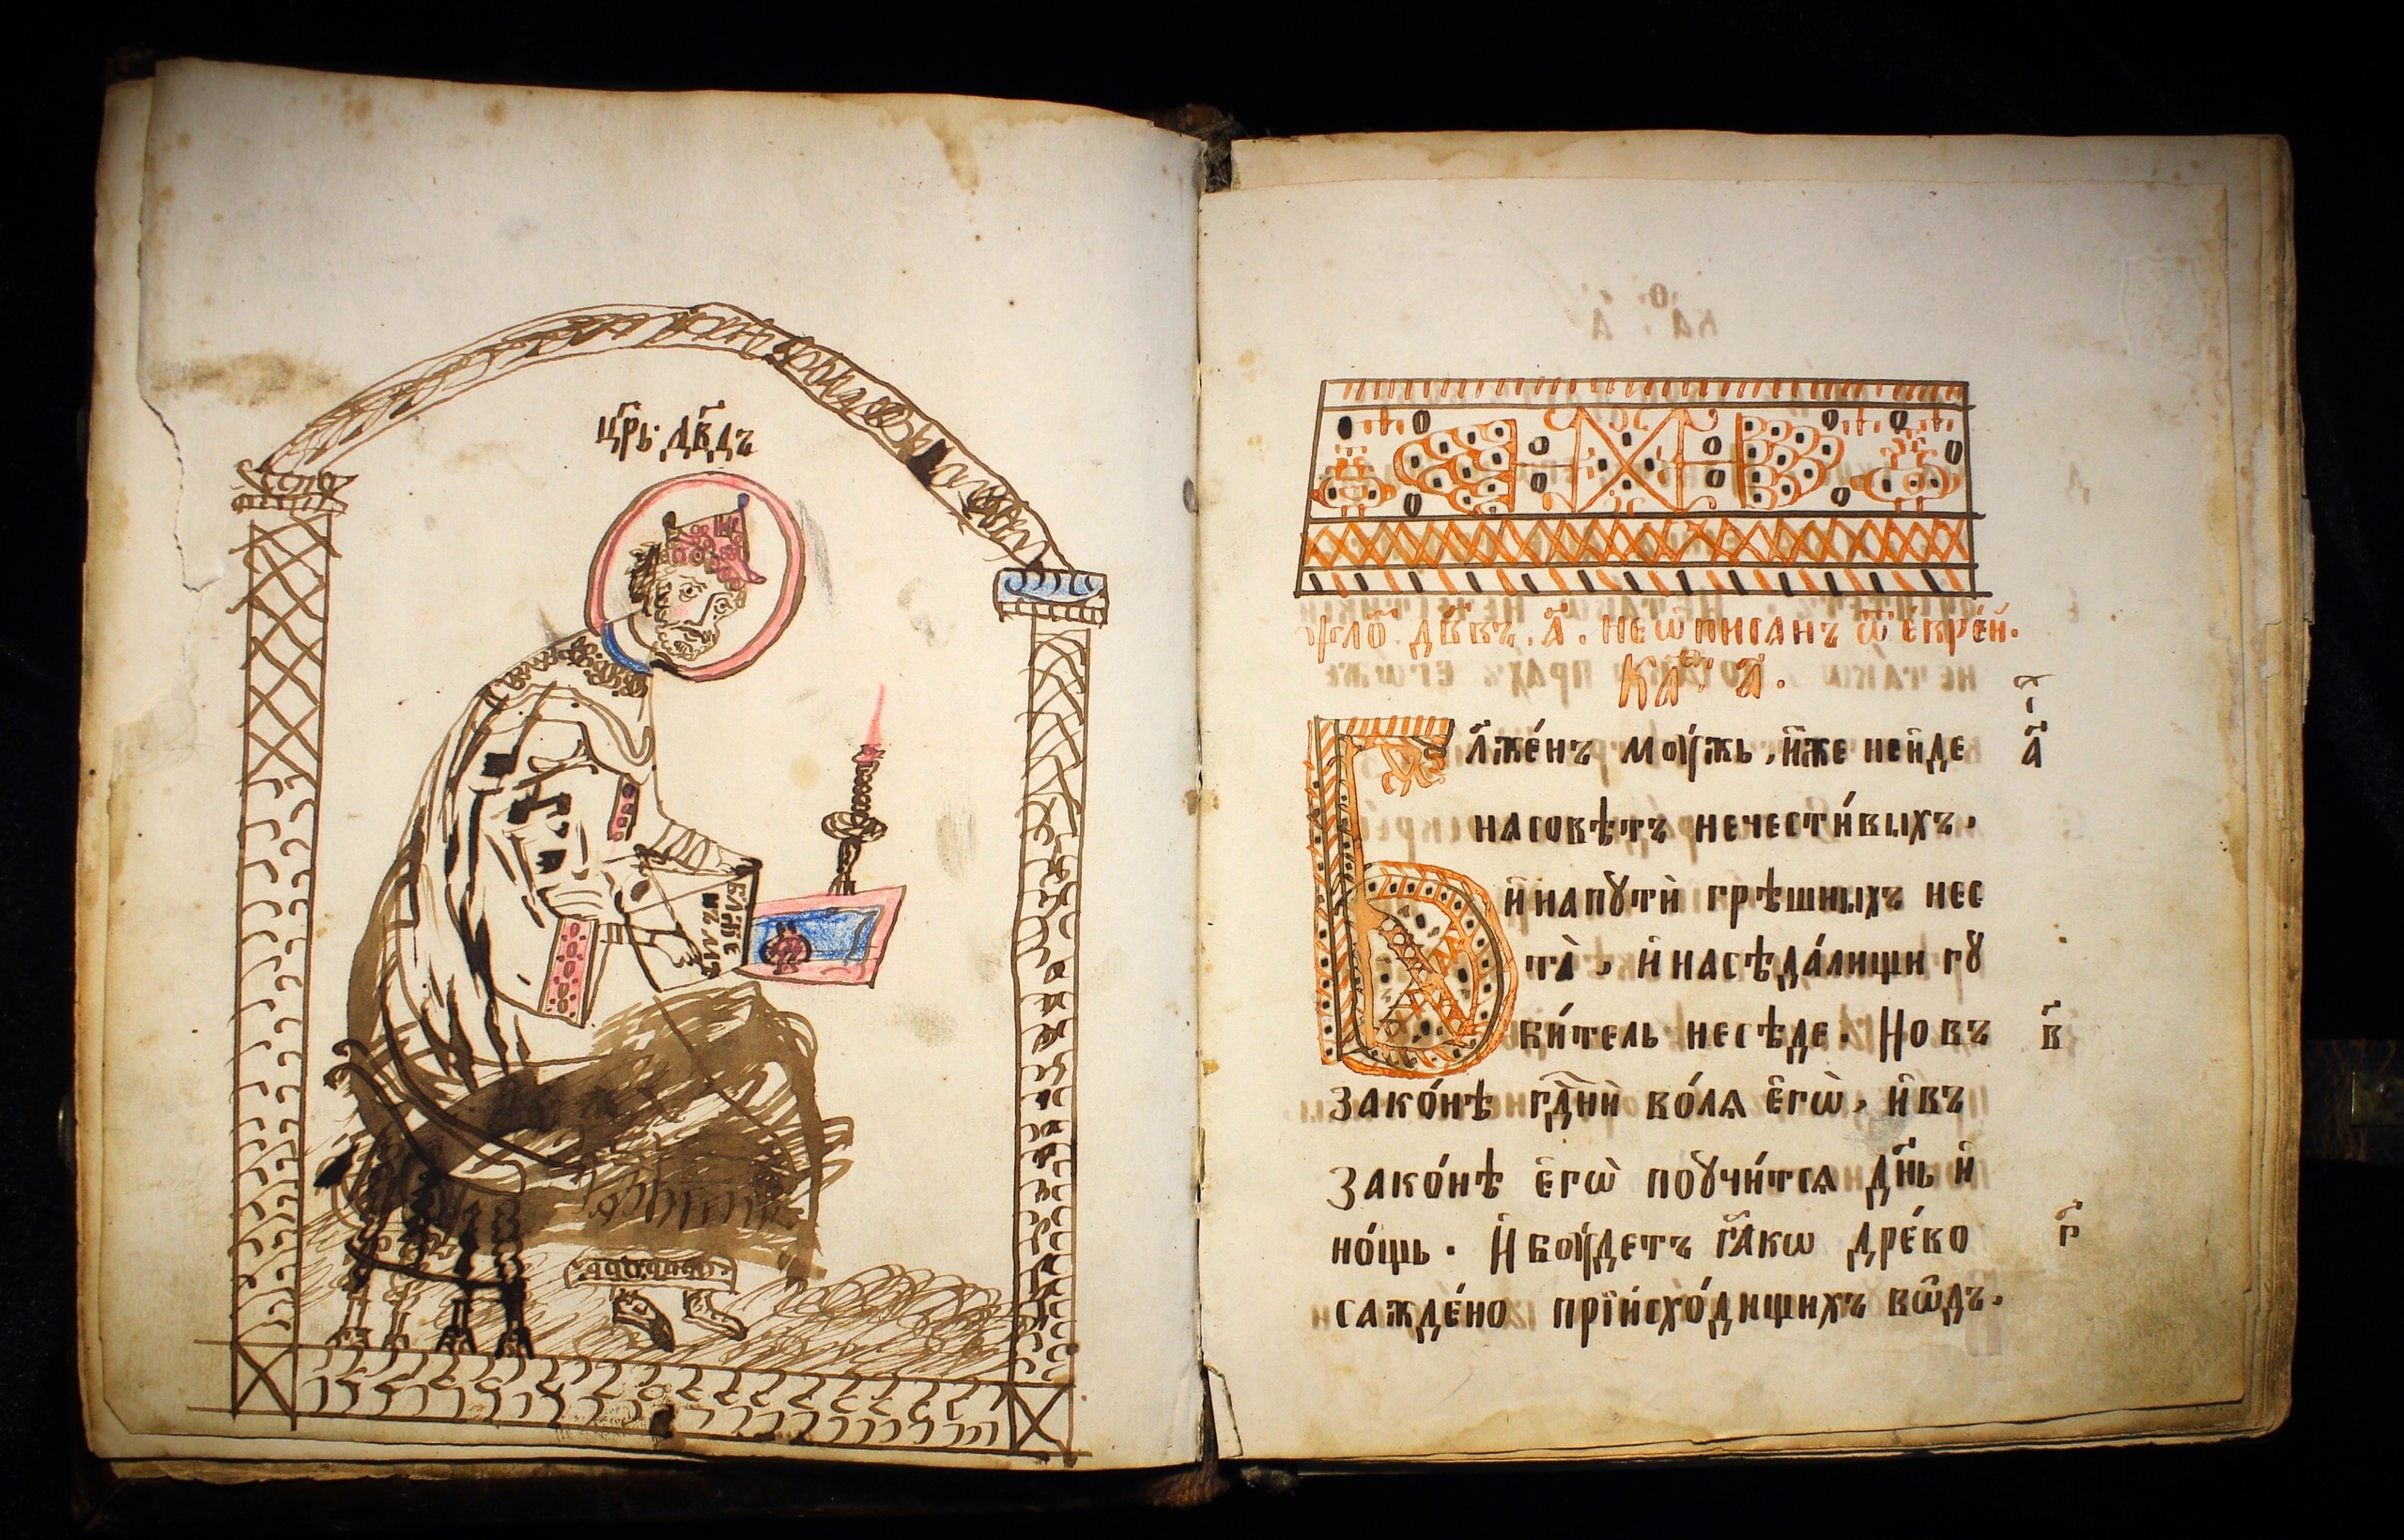 цр҃ь · дв҃дъ
БЛ҃ЖЕ
НЪ МꙊ
ѱло́ . дв҃въ . а҃ . неѡ҆писанъ ѿ е҆врє́й .
Каѳ . а҃ .
Бл҃же́нъ моу́жь , и҆́же неи́де а҃
насовѣ́тъ нечести́выхъ .
и҆ напꙋти̑ грѣ́шныхъ нес
та̀ , и҆ насѣда́лищи гꙋ
би́тель несѣ́де . Но въ в҃
зако́нѣ гд҃ни во́ля є҆гѡ̀ , и҆ въ
зако́нѣ є҆гѡ̀ поꙋчи́тсѧ дн҃ь и҆
но́щь . И҆ бꙋ́детъ ꙗ҆́кѡ дре́во г҃
сажде́но прїи҆схо́дищихъ во̑дъ .